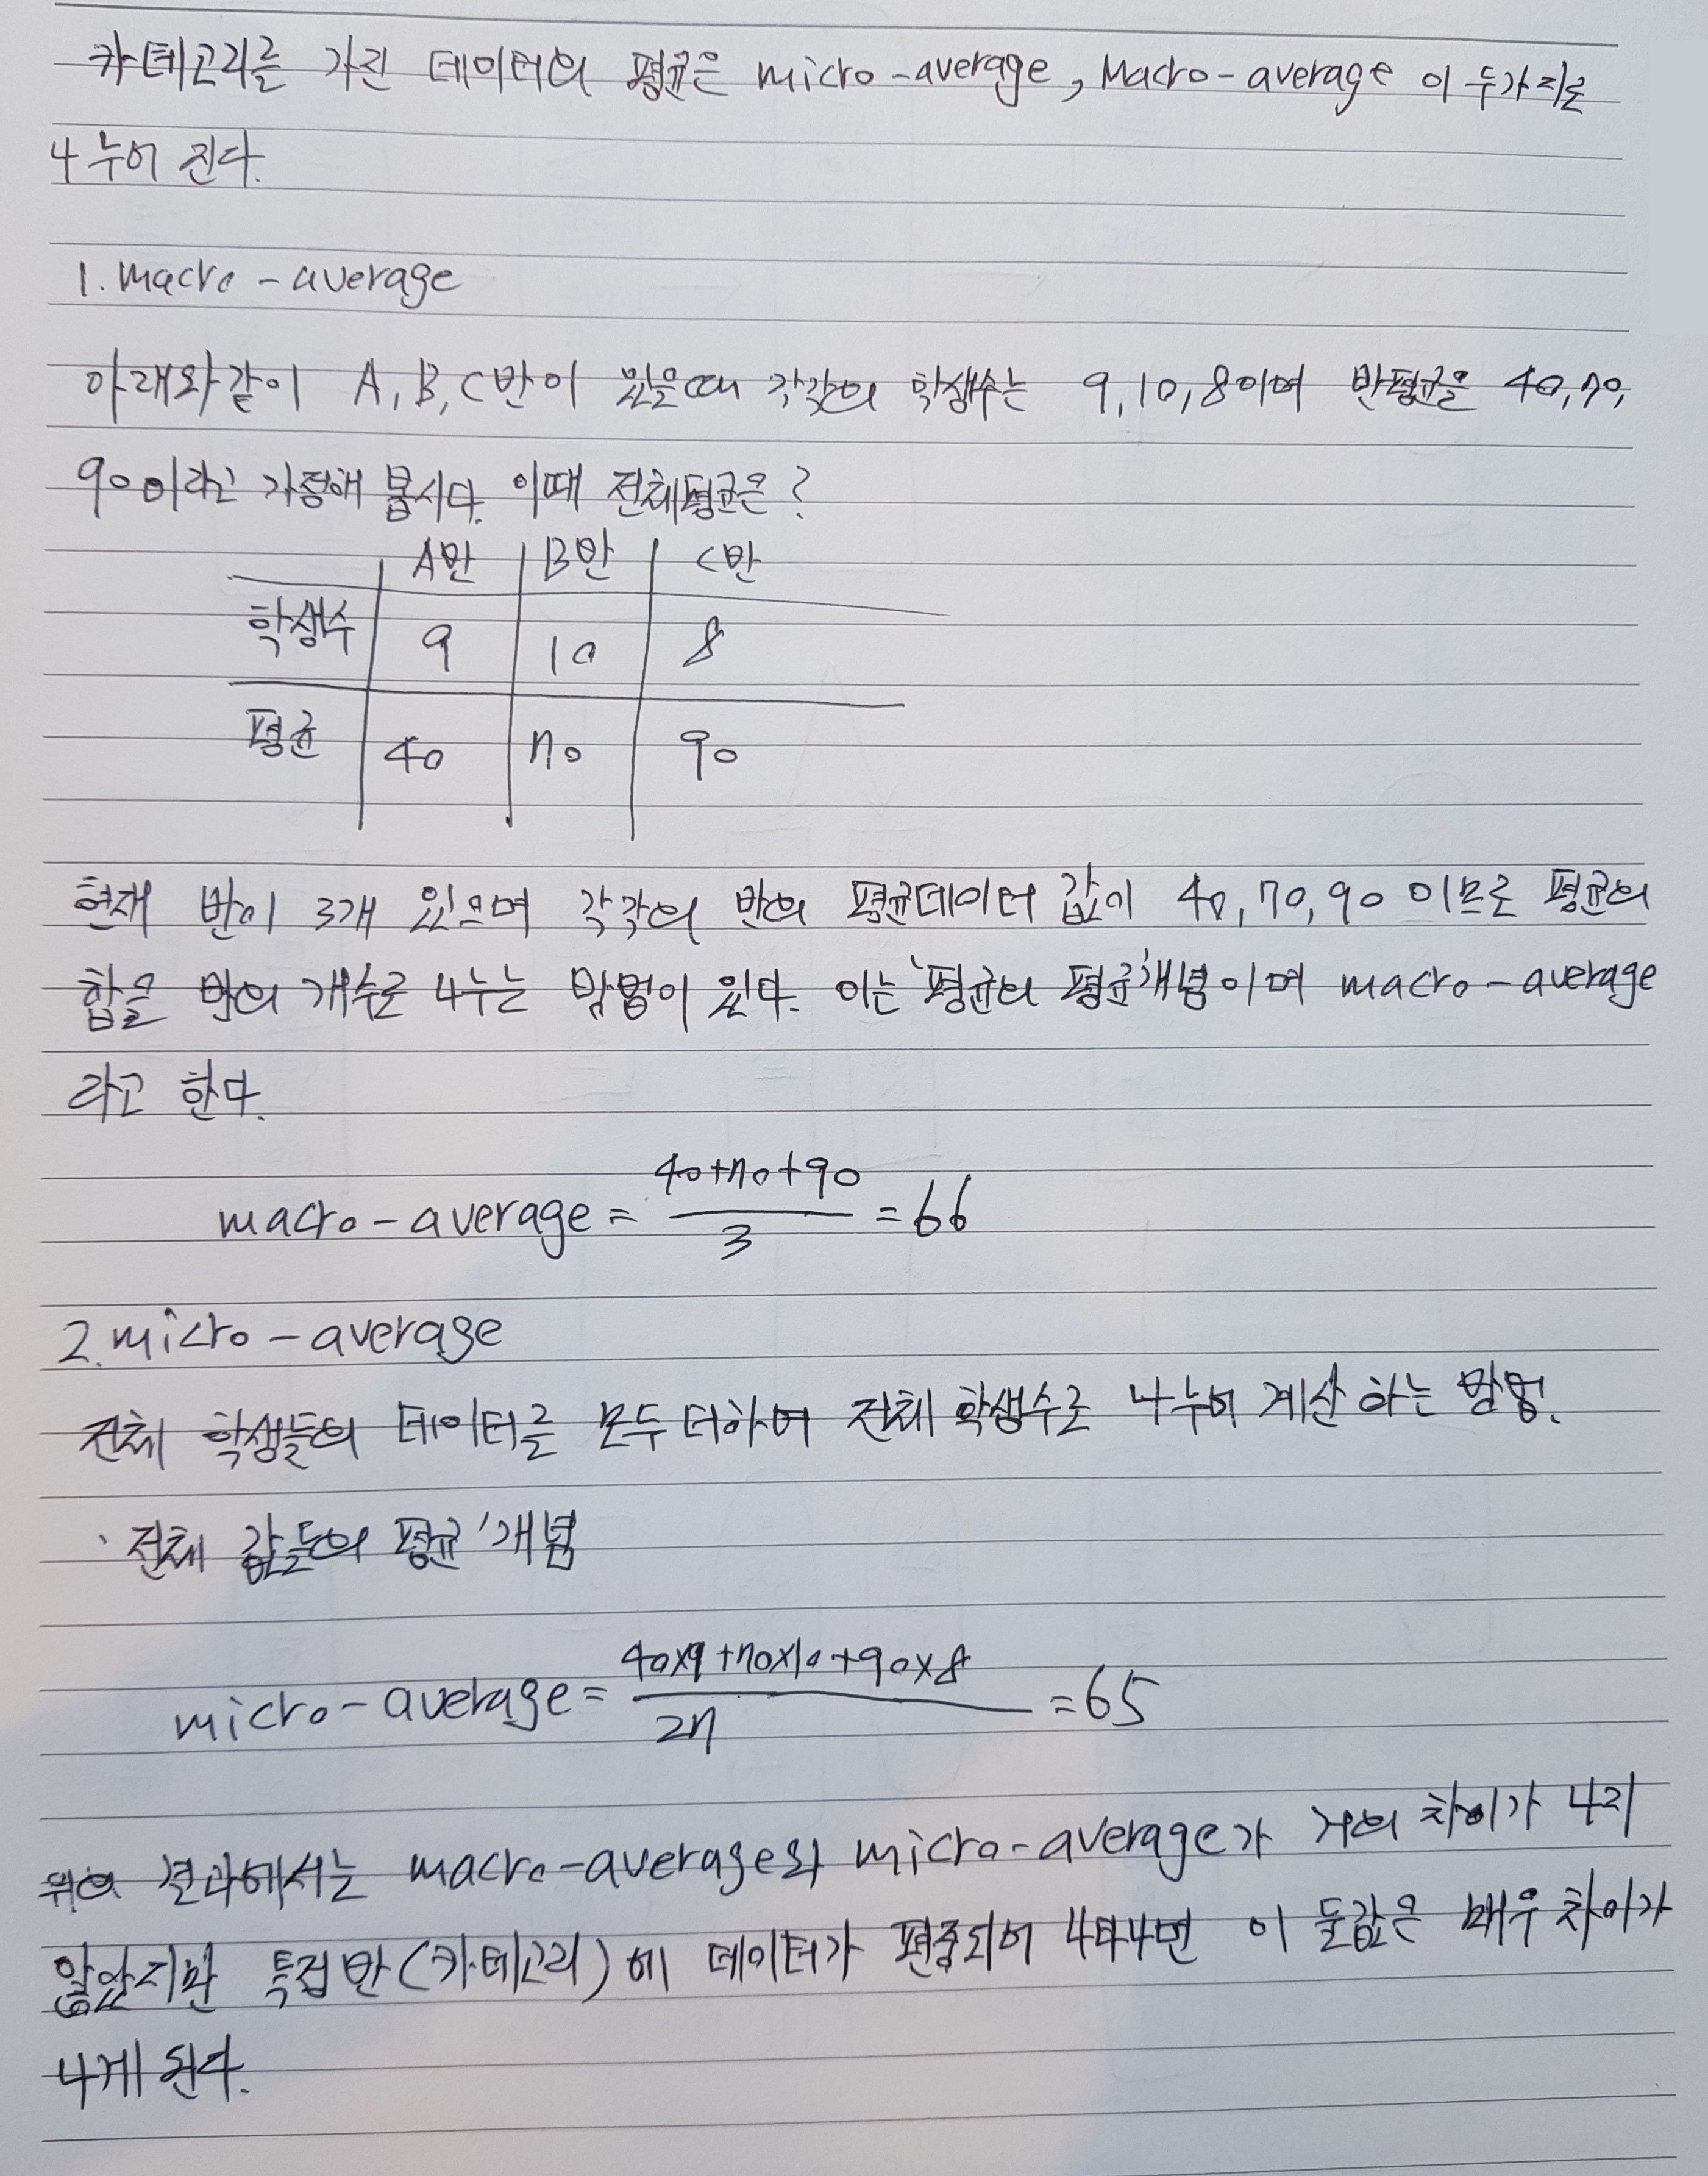 카테고리를 가진 데이터의 평균은 micro-average, Macro-average 이 두가지로
나누어 진다.
1. macro-average
아래와 같이 A, B, C반이 있을때 각각의 학생수는 9, 10, 8이며 반평균을 40, 70,
90이라고 가정해 봅시다. 이때 전체평균은?
A반 B반 C반
학생수 9 10 8
평균 40 70 90
현재 반이 3개 있으며 각각의 반의 평균데이터 값이 40, 70, 90 이므로 평균의
합을 반의 개수로 나누는 방법이 있다. 이는 '평균의 평균'개념이며 macro-average
라고 한다.
macro-average = (40+70+90)/3 = 66
2. micro-average
전체 학생들의 데이터를 모두 더하여 전체 학생수로 나누어 계산 하는 방법.
'전체 값들의 평균'개념
micro-average = (40x9+70x10+90x8)/27 = 65
위의 결과에서는 macro-average와 micro-average가 거의 차이가 나지
않았지만 특정 반(카테고리)에 데이터가 편중되어 나타나면 이 둘값은 매우 차이가
나게 된다.